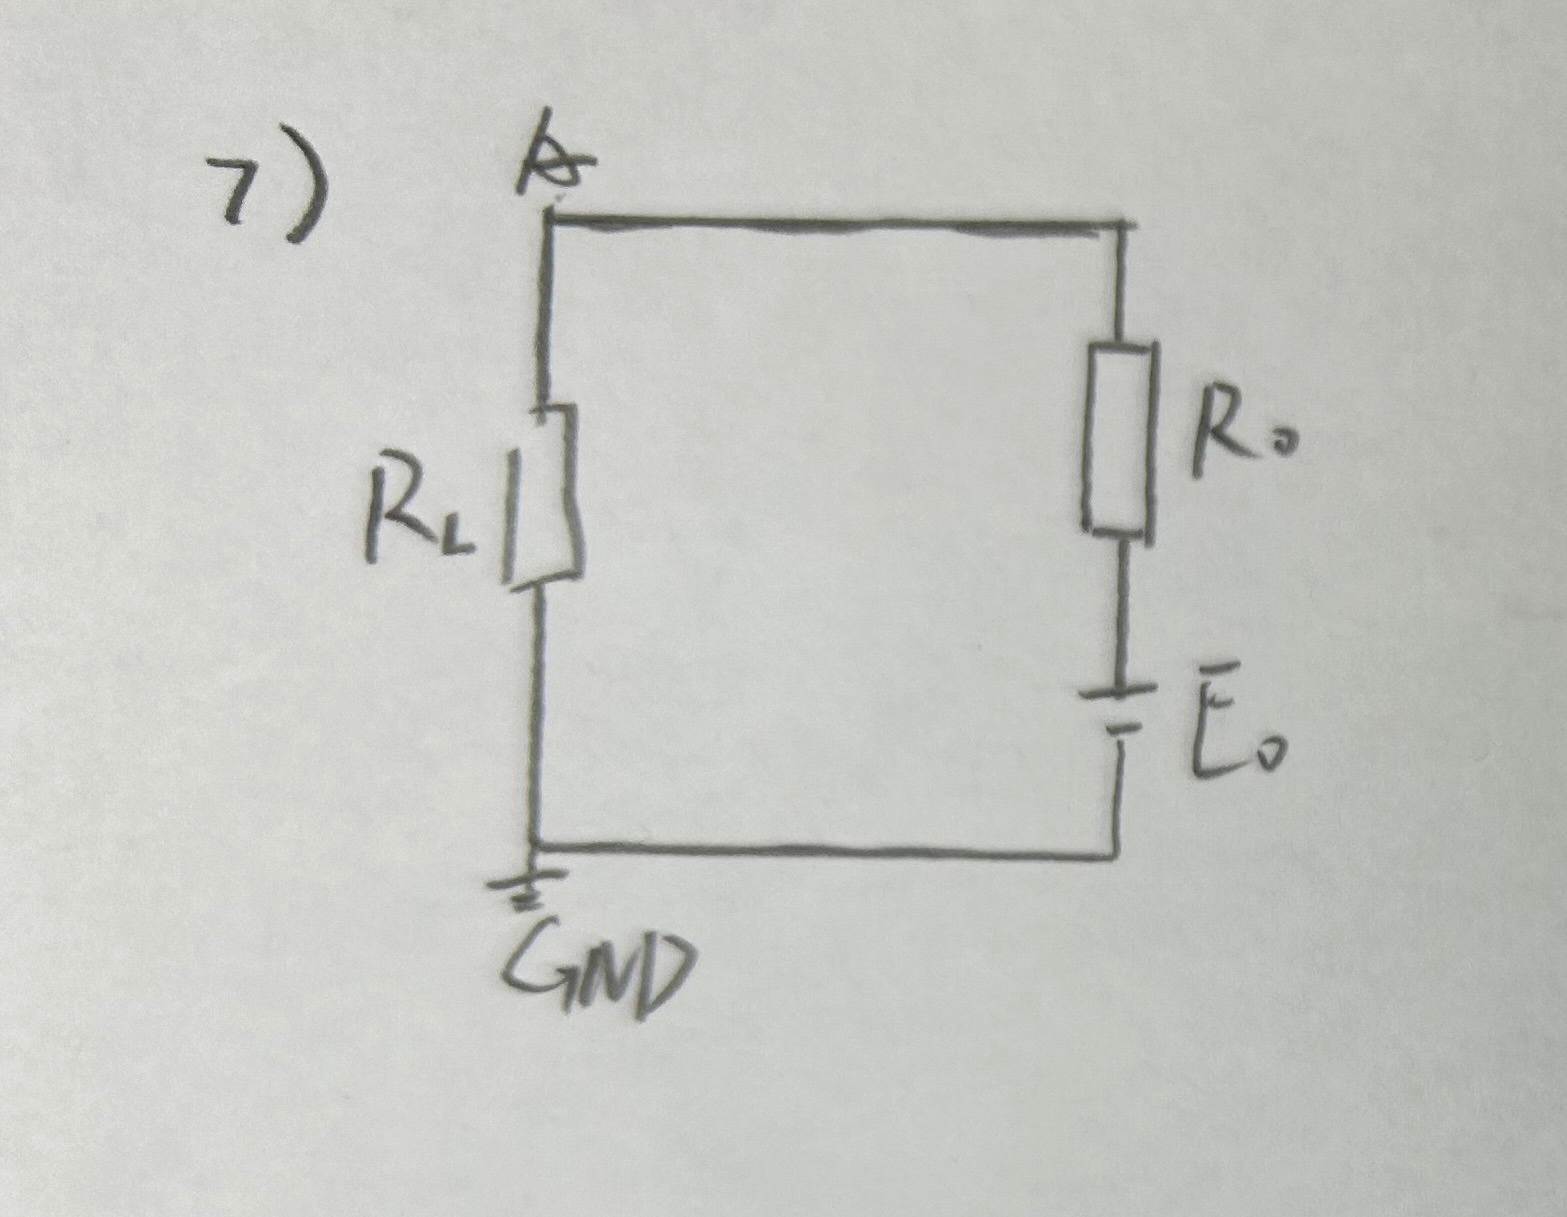 7)
A
R₀
R_L
E₀
GND